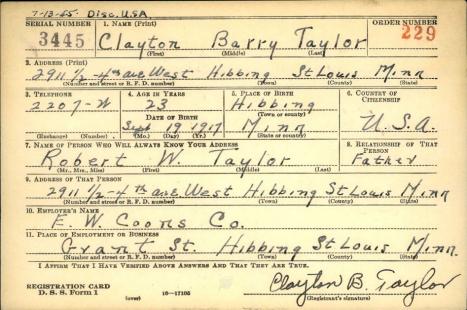 7-13-45 Disc. U.S.A.
SERIAL NUMBER 1. NAME (Print) ORDER NUMBER
3445 Clayton Barry Taylor 229
(First) (Middle) (Last)
2. ADDRESS (Print)
2911 1/2 4th ave West Hibbing St Louis Minn
(Number and street or R. F. D. number) (Town) (County) (State)
3. TELEPHONE 4. AGE IN YEARS 5. PLACE OF BIRTH 6. COUNTRY OF CITIZENSHIP
2207-W 23 Hibbing
(Town or county)
DATE OF BIRTH
Sept 19 1917 Minn U.S.A.
(Exchange) (Number) (Mo.) (Day) (Yr.) (State or country)
7. NAME OF PERSON WHO WILL ALWAYS KNOW YOUR ADDRESS 8. RELATIONSHIP OF THAT PERSON
Robert W. Taylor Father
(Mr., Mrs., Miss) (First) (Middle) (Last)
9. ADDRESS OF THAT PERSON
2911 1/2 - 4th ave. West Hibbing St Louis Minn
(Number and street or R. F. D. number) (Town) (County) (State)
10. EMPLOYER'S NAME
E. W. Coons Co.
11. PLACE OF EMPLOYMENT OR BUSINESS
Grant St. Hibbing St Louis Minn.
(Number and street or R. F. D. number) (Town) (County) (State)
I AFFIRM THAT I HAVE VERIFIED ABOVE ANSWERS AND THAT THEY ARE TRUE.
Clayton B. Taylor
REGISTRATION CARD
D. S. S. Form 1 (over) 16-17105 (Registrant's signature)